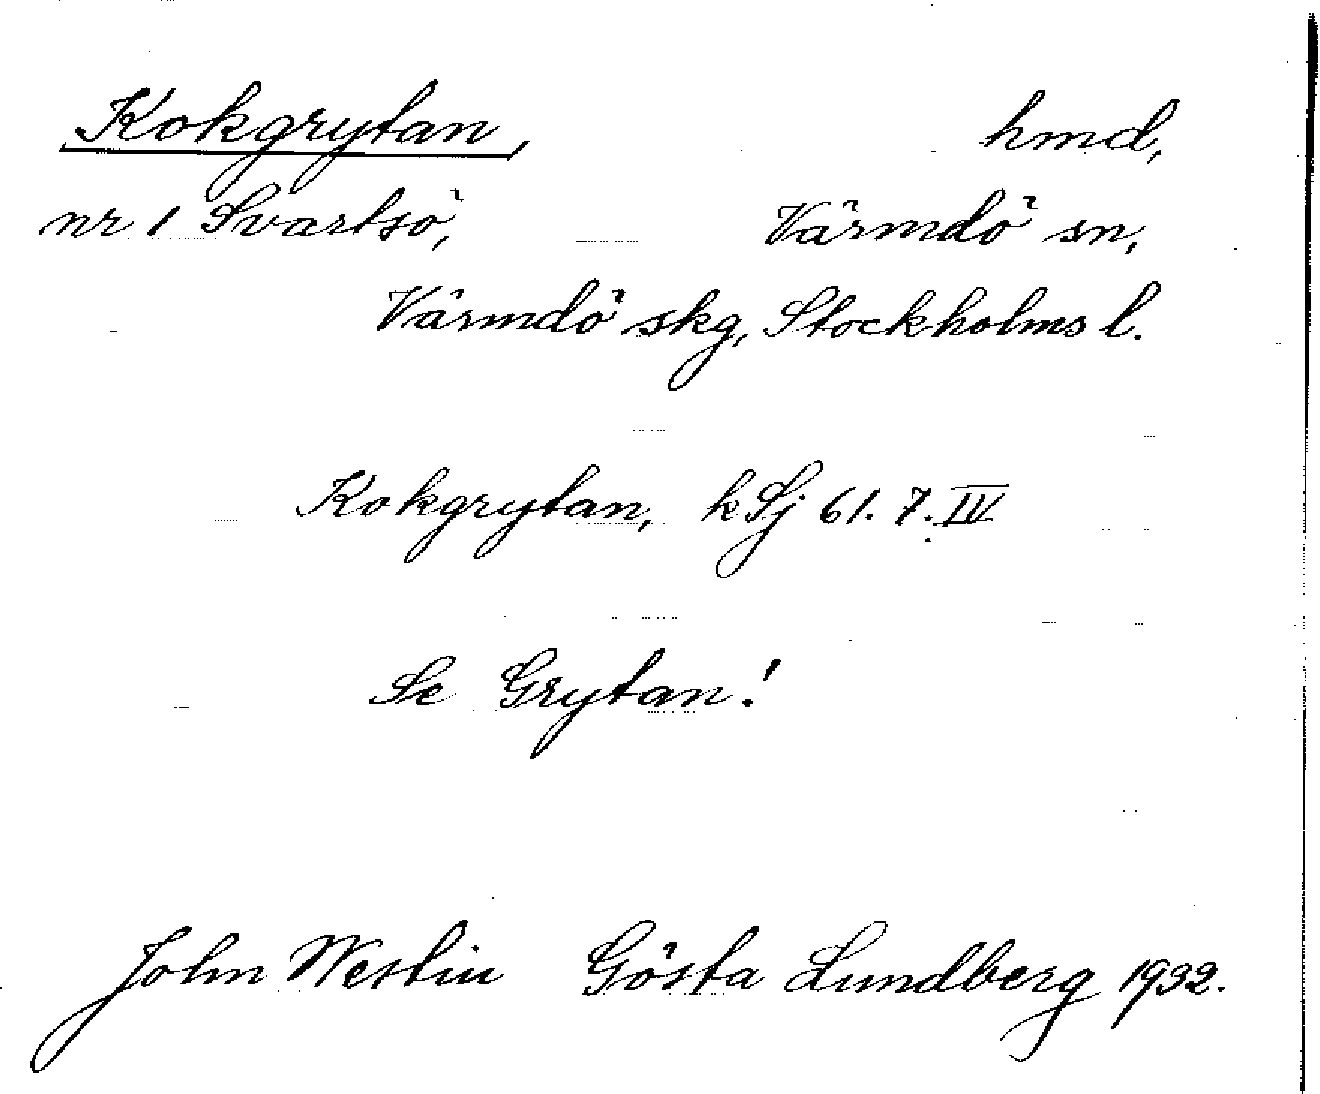 Kokgrytan, hmd,
nr 1 Svartsö, Värmdö sn,
Värmdö skg, Stockholms l.
Kokgrytan, kSj 61. 7. IV
Se Grytan!
John Westin Gösta Lundberg 1932.